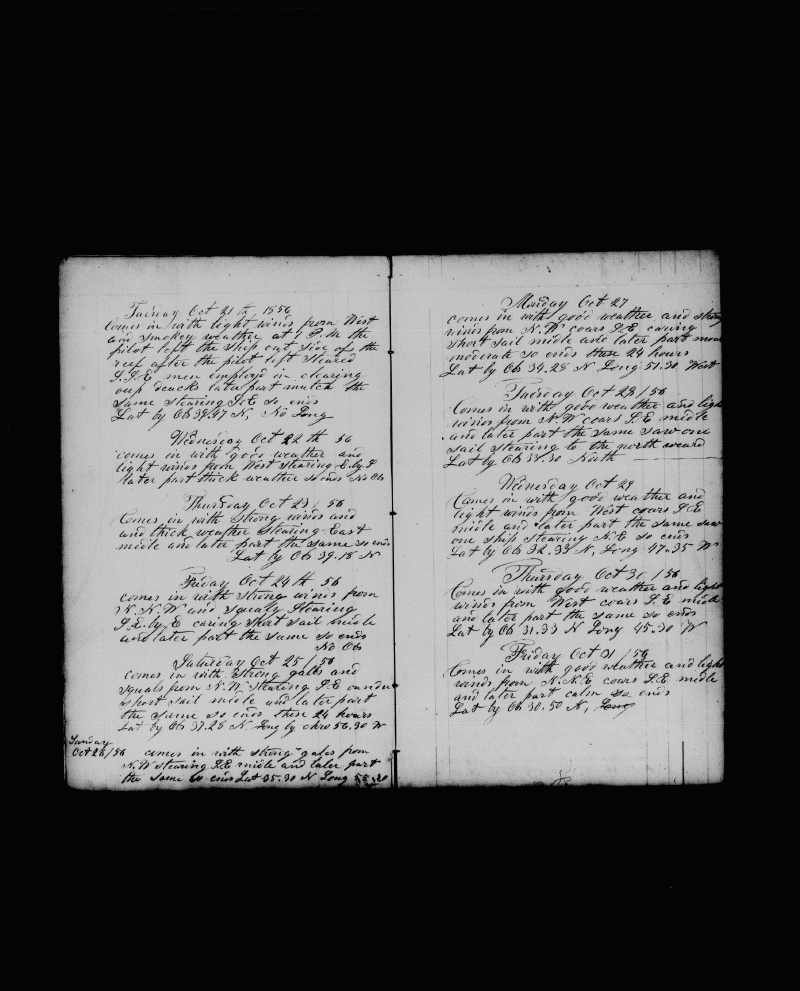 Tuesday Oct 21 th, 1856
Comes in with light winds from West
and smokey weather at 1 P.M the
pilot left the ship out side of the
reef after the pilot left steared
S.S.E men employd in clearing
oup deucks later part mutch the
same stearing S.E so ends
Lat by Ob 39.47 N, No Long
Wednesday Oct 22 th 56
comes in with good weather and
light winds from West stearing E.by.S
later part thick weather so ends No Ob
Thursday Oct 23 / 56
Comes in with strong winds and
and thick weather stearing East
midle and later part the same so ends
Lat by Ob 39.18 N
Friday Oct 24 th 56
comes in with strong winds from
N.N.W and squaly stearing
S.E.by.E caring short sail midle
and later part the same so ends
No Ob
Saturday Oct 25 / 56
comes in with strong gales and
squals from N.W. stearing S.E under
short sail midle and later part
the same so ends these 24 hours
Lat by Ob 37.28 N Long by chro 56.30 W
Sunday
Oct 26/56 comes in with strong gales from
N.W stearing S.E midle and later part
the same so ends Lat 35.30 N Long 55.20
Monday Oct 27
comes in with good weather and strong
winds from N.W cours S.E caring
short sail midle and later part more
moderate so ends these 24 hours
Lat by Ob 34.28 N Long 51.30 West
Tuesday Oct 28 / 56
Comes in with good weather and ligh
winds from N.W cours S.E midle
and later part the same saw one
sail stearing to the north weard
Lat by Ob 33.30 North
Wednesday Oct 29
Comes in with good weather and
light winds from West cours S.E
midle and later part the same saw
one ship stearing N.E so ends
Lat by Ob 32.33 N, Long 47.35 W
Thursday Oct 30 / 56
Comes in with good weather and light
winds from West cours S.E midle
and later part the same so ends
Lat by Ob 31.33 N Long 45.30 W
Friday Oct 31 / 56
Comes in with good weather and light
winds from N.N.E cours S.E midle
and later part calm so ends
Lat by Ob 30.50 N, Long